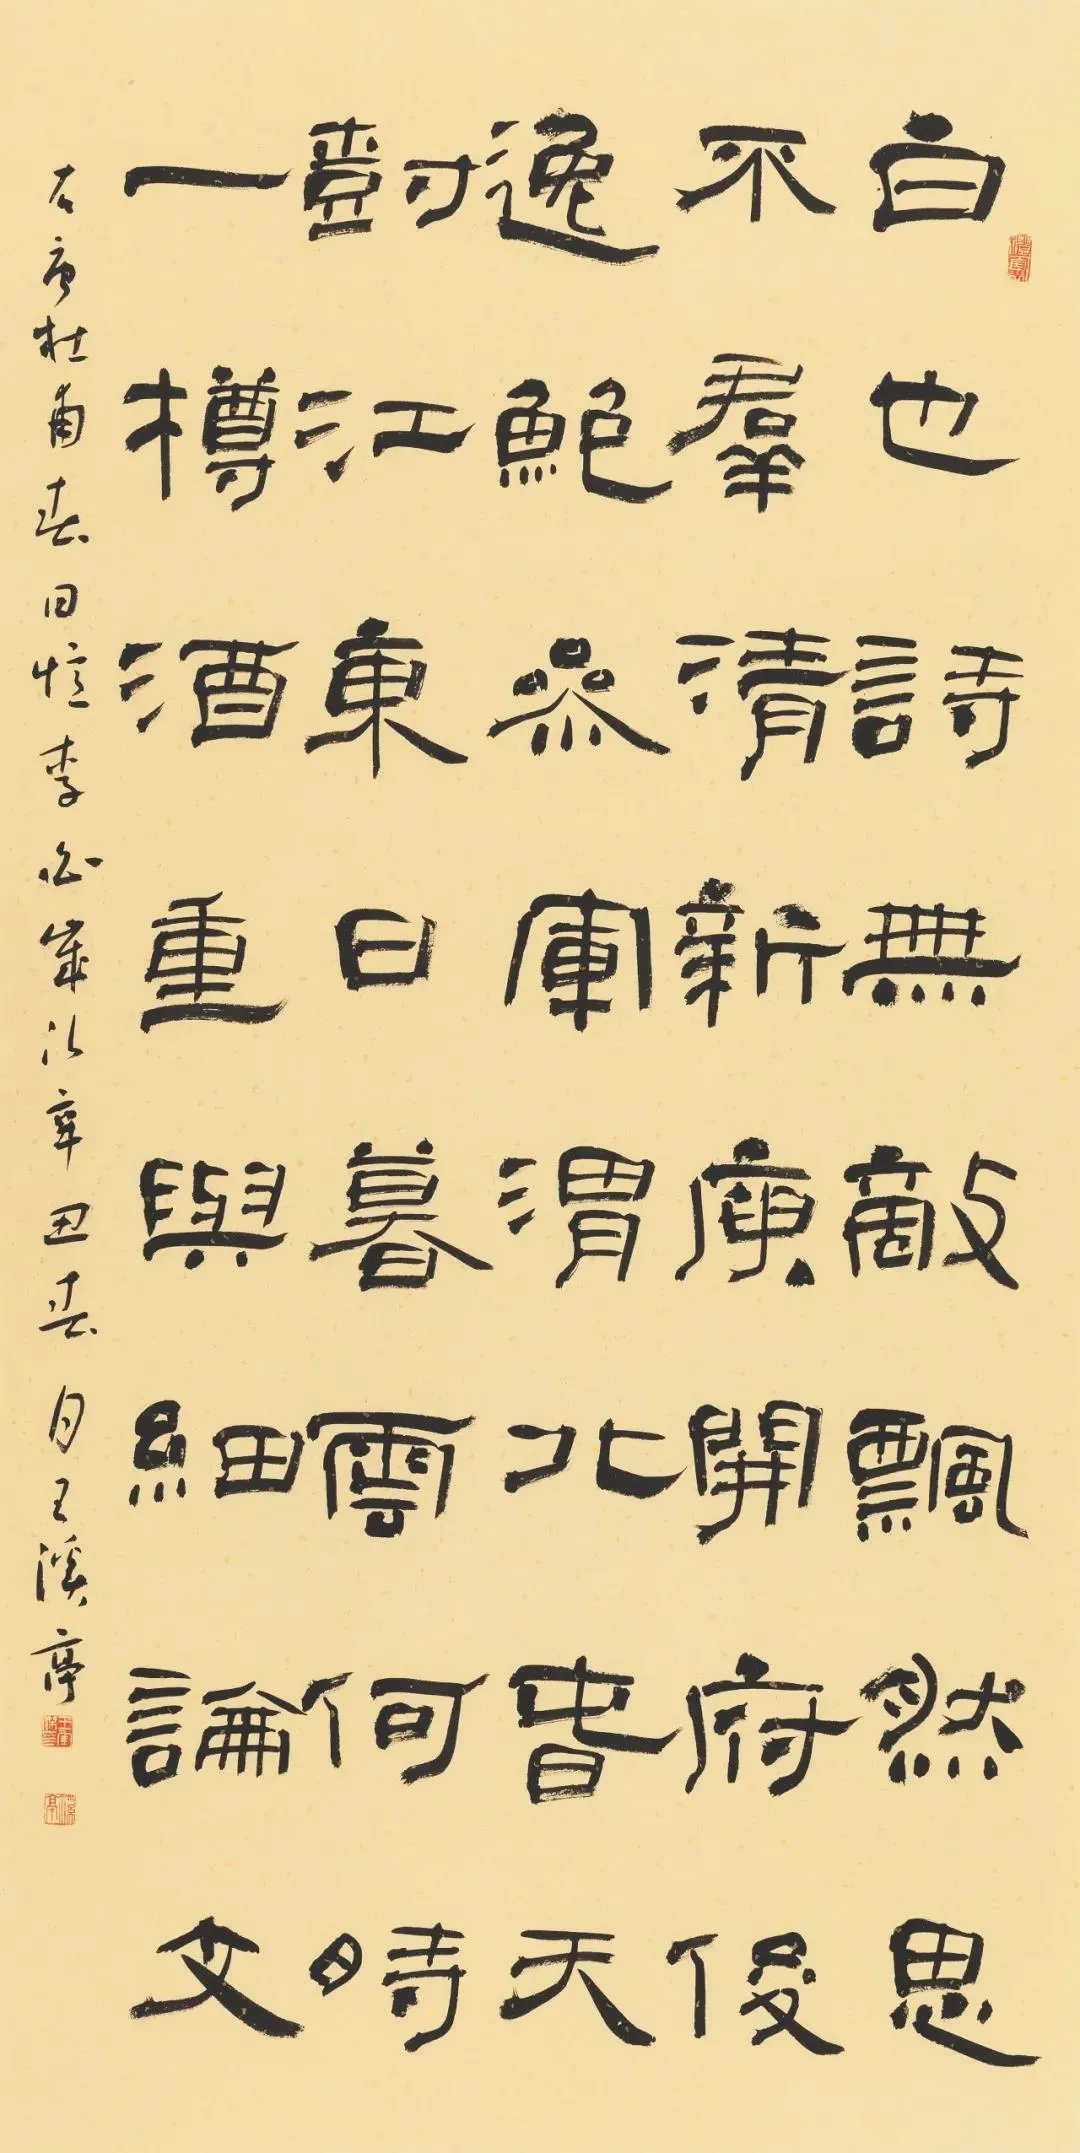 白也詩無敵飄然思
不羣清新庾開府俊
逸鮑參軍渭北春天
樹江東日暮雲何時
一樽酒重與細論文
右唐杜甫春日憶李白歲次辛丑春月王溪亭